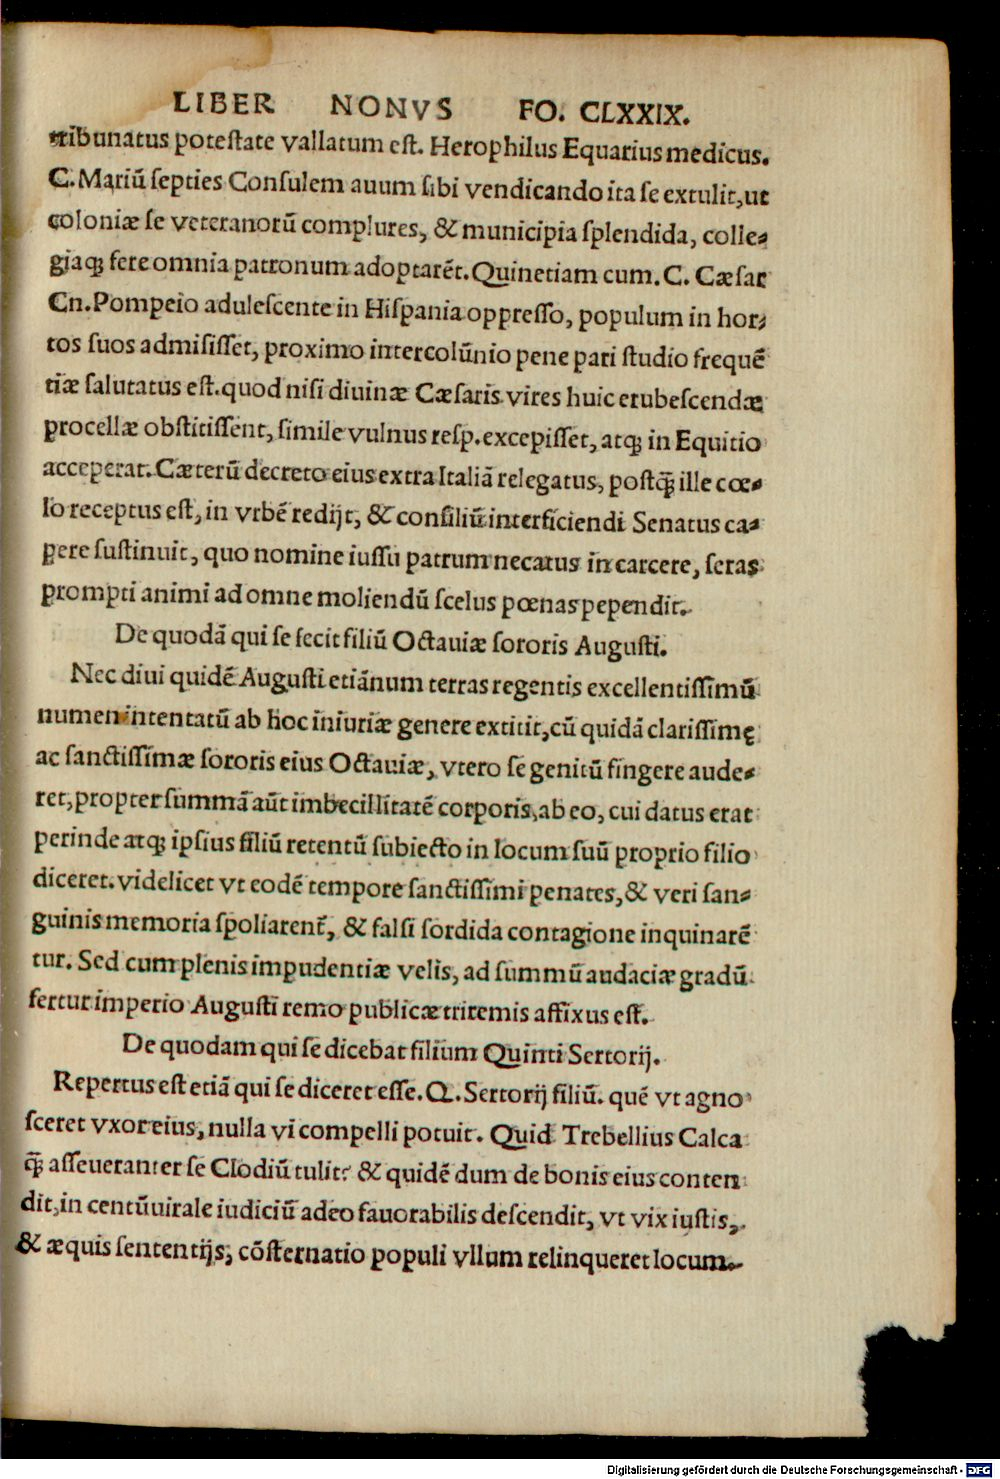 LIBER NONVS FO. CLXXIX.
tribunatus potestate vallatum est. Herophilus Equarius medicus.
C. Mariū septies Consulem auum sibi vendicando ita se extulit, ut
coloniæ se veteranorū complures, & municipia splendida, colle-
giaq; fere omnia patronum adoptarēt. Quinetiam cum. C. Cæsar
Cn. Pompeio adulescente in Hispania oppresso, populum in hor-
tos suos admisisset, proximo intercolūnio pene pari studio frequē
tiæ salutatus est. quod nisi diuinæ Cæsaris vires huic erubescendæ
procellæ obstitissent, simile vulnus resp. excepisset, atq; in Equitio
acceperat. Cæterū decreto eius extra Italiā relegatus, postq̄ ille cœ-
lo receptus est, in vrbē redijt, & consiliū interficiendi Senatus ca-
pere sustinuit, quo nomine iussu patrum necatus in carcere, seras
prompti animi ad omne moliendū scelus pœnas pependit.
De quodā qui se fecit filiū Octauiæ sororis Augusti.
Nec diui quidē Augusti etiānum terras regentis excellentissimū
numen intentatū ab hoc iniuriæ genere extitit, cū quidā clarissimę
ac sanctissimæ sororis eius Octauiæ, vtero se genitū fingere aude-
ret, propter summā aūt imbecillitatē corporis, ab eo, cui datus erat
perinde atq; ipsius filiū retentū subiecto in locum suū proprio filio
diceret. videlicet vt eodē tempore sanctissimi penates, & veri san-
guinis memoria spoliarent̄, & falsi sordida contagione inquinarē
tur. Sed cum plenis impudentiæ velis, ad summū audaciæ gradū
fertur imperio Augusti remo publicæ triremis affixus est.
De quodam qui se dicebat filium Quinti Sertorij.
Repertus est etiā qui se diceret esse. Q. Sertorij filiū. quē vt agno
sceret vxor eius, nulla vi compelli potuit. Quid Trebellius Calca
q̄ asseueranter se Clodiū tulit? & quidē dum de bonis eius conten
dit, in centūuirale iudiciū adeo fauorabilis descendit, vt vix iustis,
& æquis sententijs, cōsternatio populi vllum relinqueret locum.
Digitalisierung gefördert durch die Deutsche Forschungsgemeinschaft - DFG